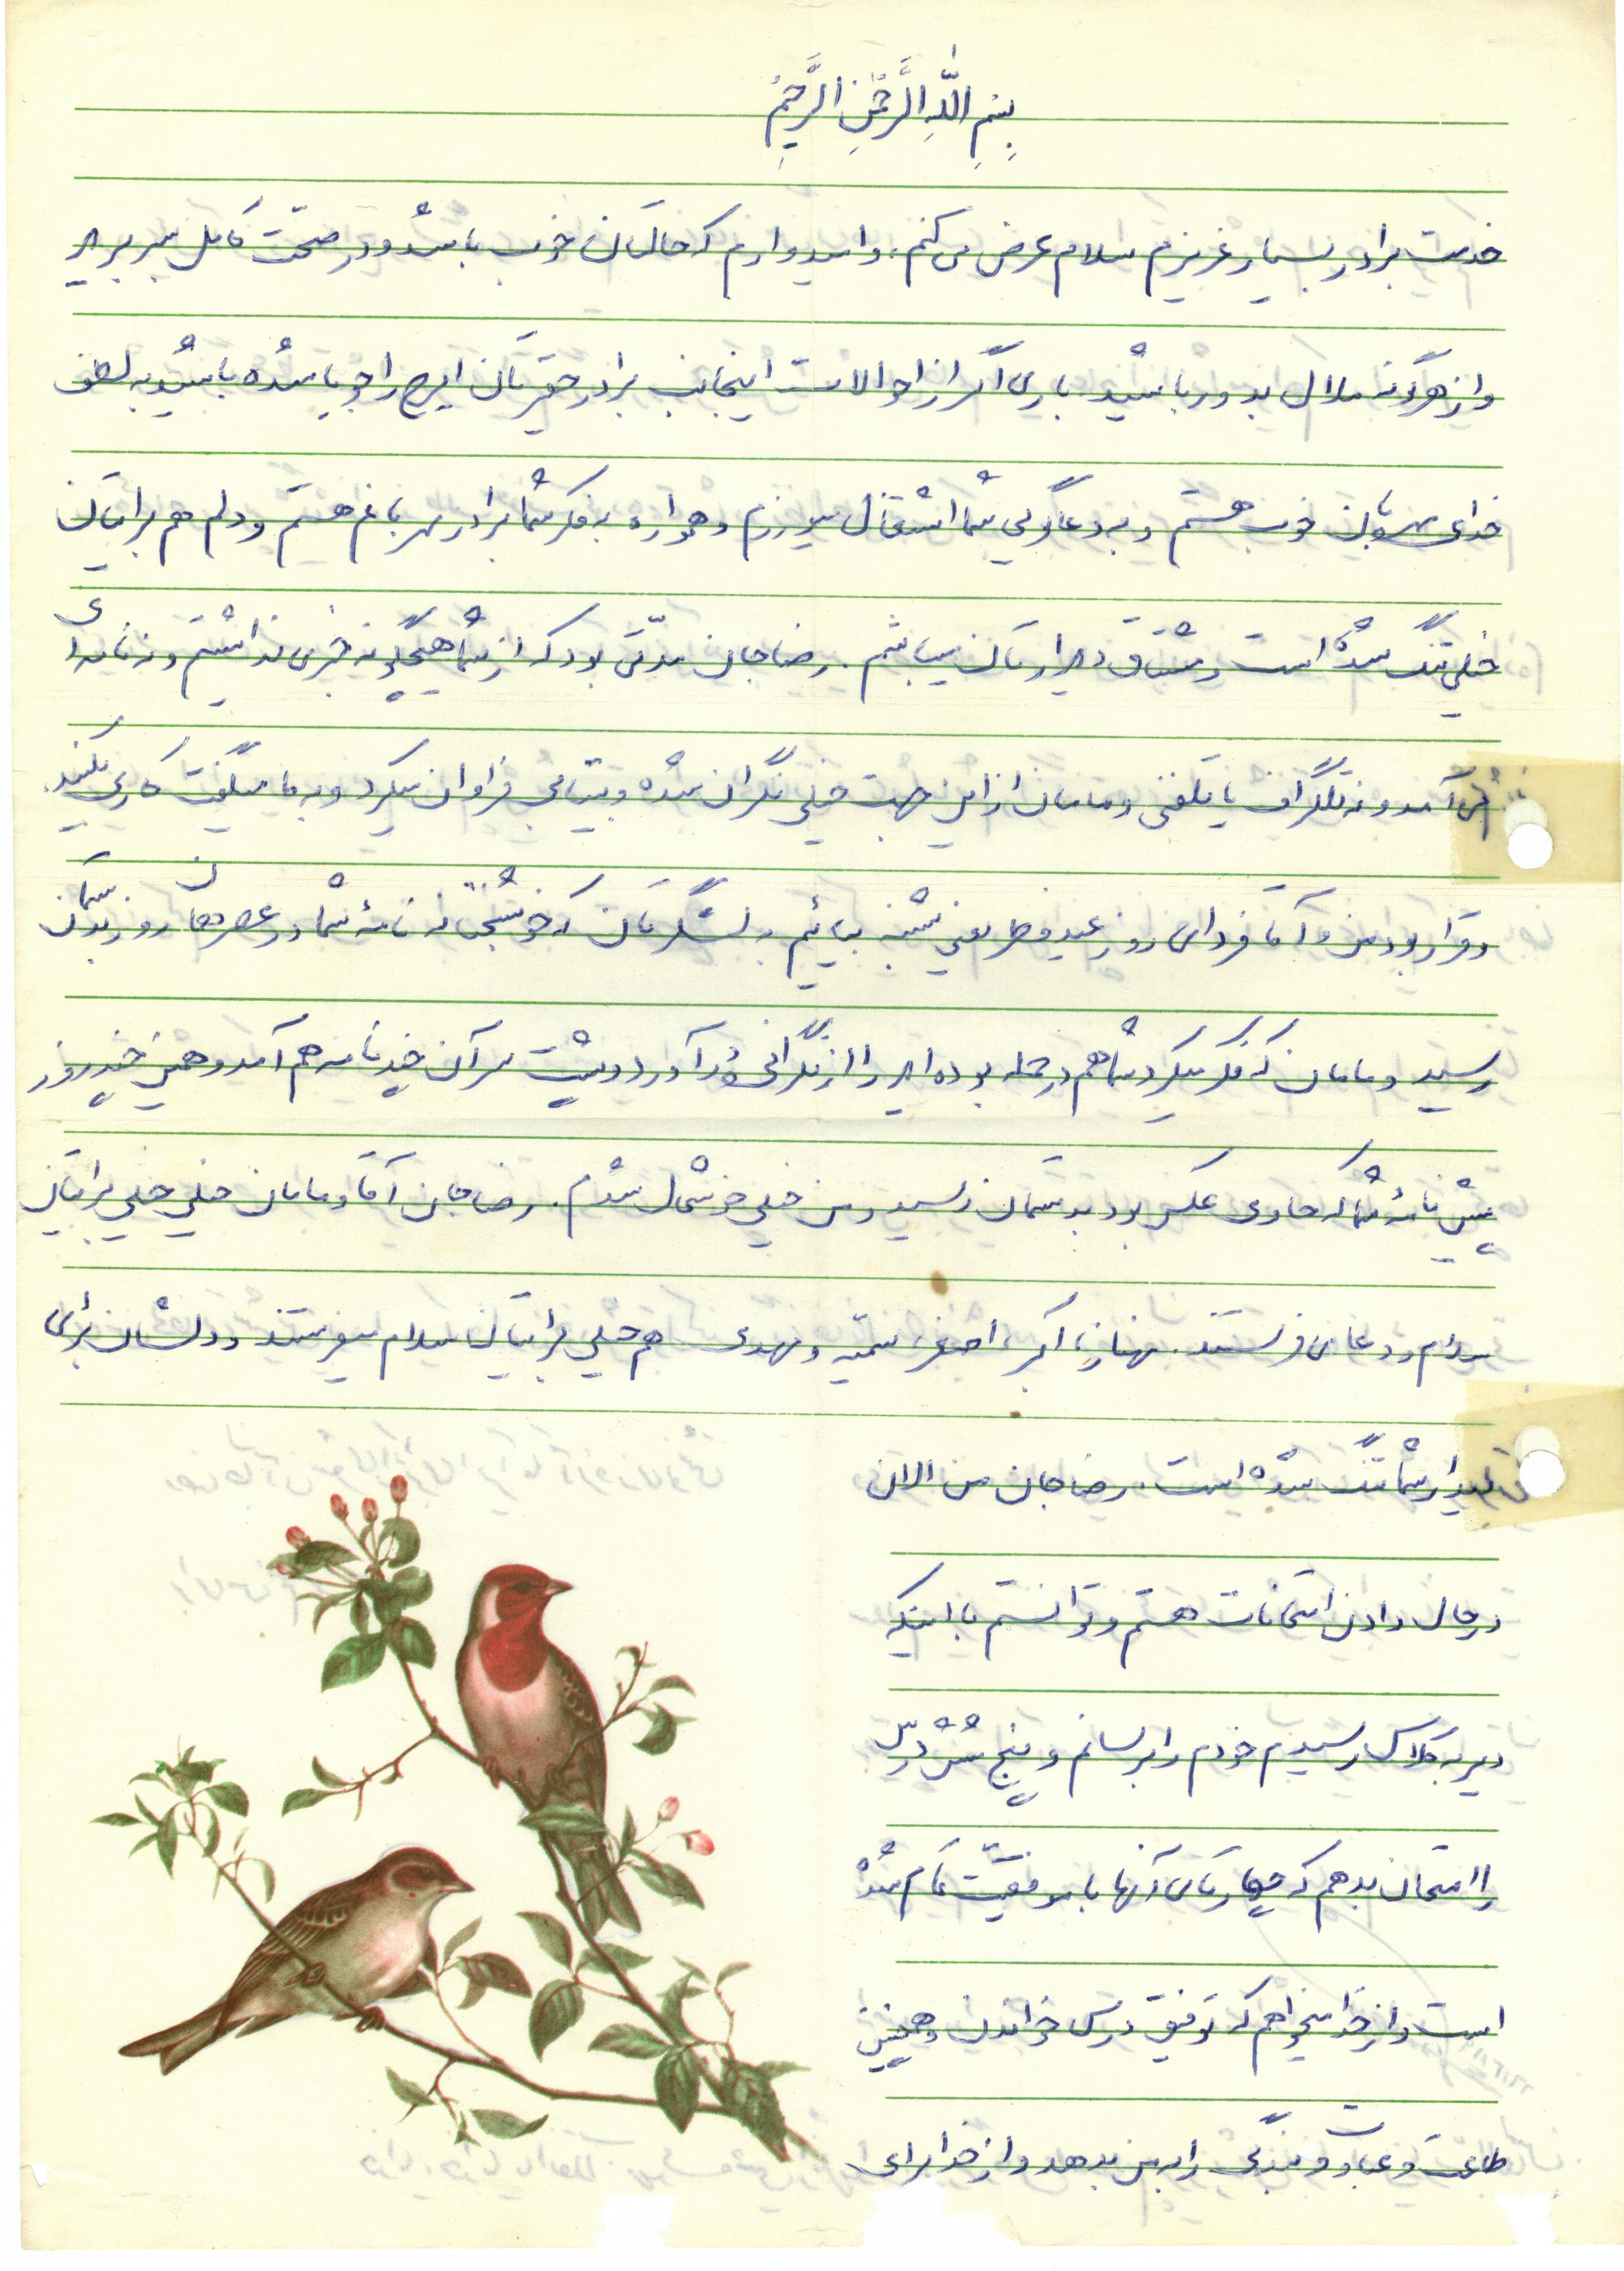 بِسْمِ اللهِ الرَّحْمنِ الرَّحِیمْ
خدمت برادر بسیار عزیزم سلام عرض می کنم. و امیدوارم که حالتان خوب باشد و در صحّت کامل بسر برید
و از هرگونه ملال بدور باشید. باری اگر از احوالات اینجانب برادر حقیرتان ایرج را جویا شده باشید به لطف
خدای مهربان خوب هستم و به دعاگویی شما اشتغال میورزم و همواره به فکر شما برادر مهربانم هستم و دلم هم برایتان
خیلی تنگ شده است و مشتاق دیدارتان میباشم. رضا جان مدّتی بود که از شما هیچگونه خبری نداشتیم و نه نامه ای
آمد و نه تلگراف یا تلفنی و مامان از این جهت خیلی نگران شده و بیتابی فراوان میکرد و به ما میگفت کاری بکنید.
و قرار بود من و آقا فردای روز عید فطر یعنی شنبه بیائیم به لشگرتان که خوشبختانه نامهٔ شما در عصر همان روز بدستمان
رسید و مامان که فکر میکرد شما هم در حمله بوده اید را از نگرانی درآورد و پشت سر آن چند نامه هم آمد و همین چند روز
پیش نامهٔ شما که حاوی عکس بود بدستمان رسید و من خیلی خوشحال شدم. رضا جان آقا و مامان خیلی خیلی برایتان
سلام و دعا می فرستند. مهناز، اکبر، اصغر، سمیّه و مهدی هم خیلی برایتان سلام میفرستند و دلشان برای
دیدار شما تنگ شده است. رضا جان من الان
در حال دادن امتحانات هستم و توانستم با اینکه
دیر به کلاس رسیدم خودم را برسانم و پنج شش درس
را امتحان بدهم که چهارتای آنها با موفقیّت تمام شده
است و از خدا میخواهم که توفیق درس خواندن و همچنین
طاعت و عبادت و بندگی را به من بدهد و از خدا برای